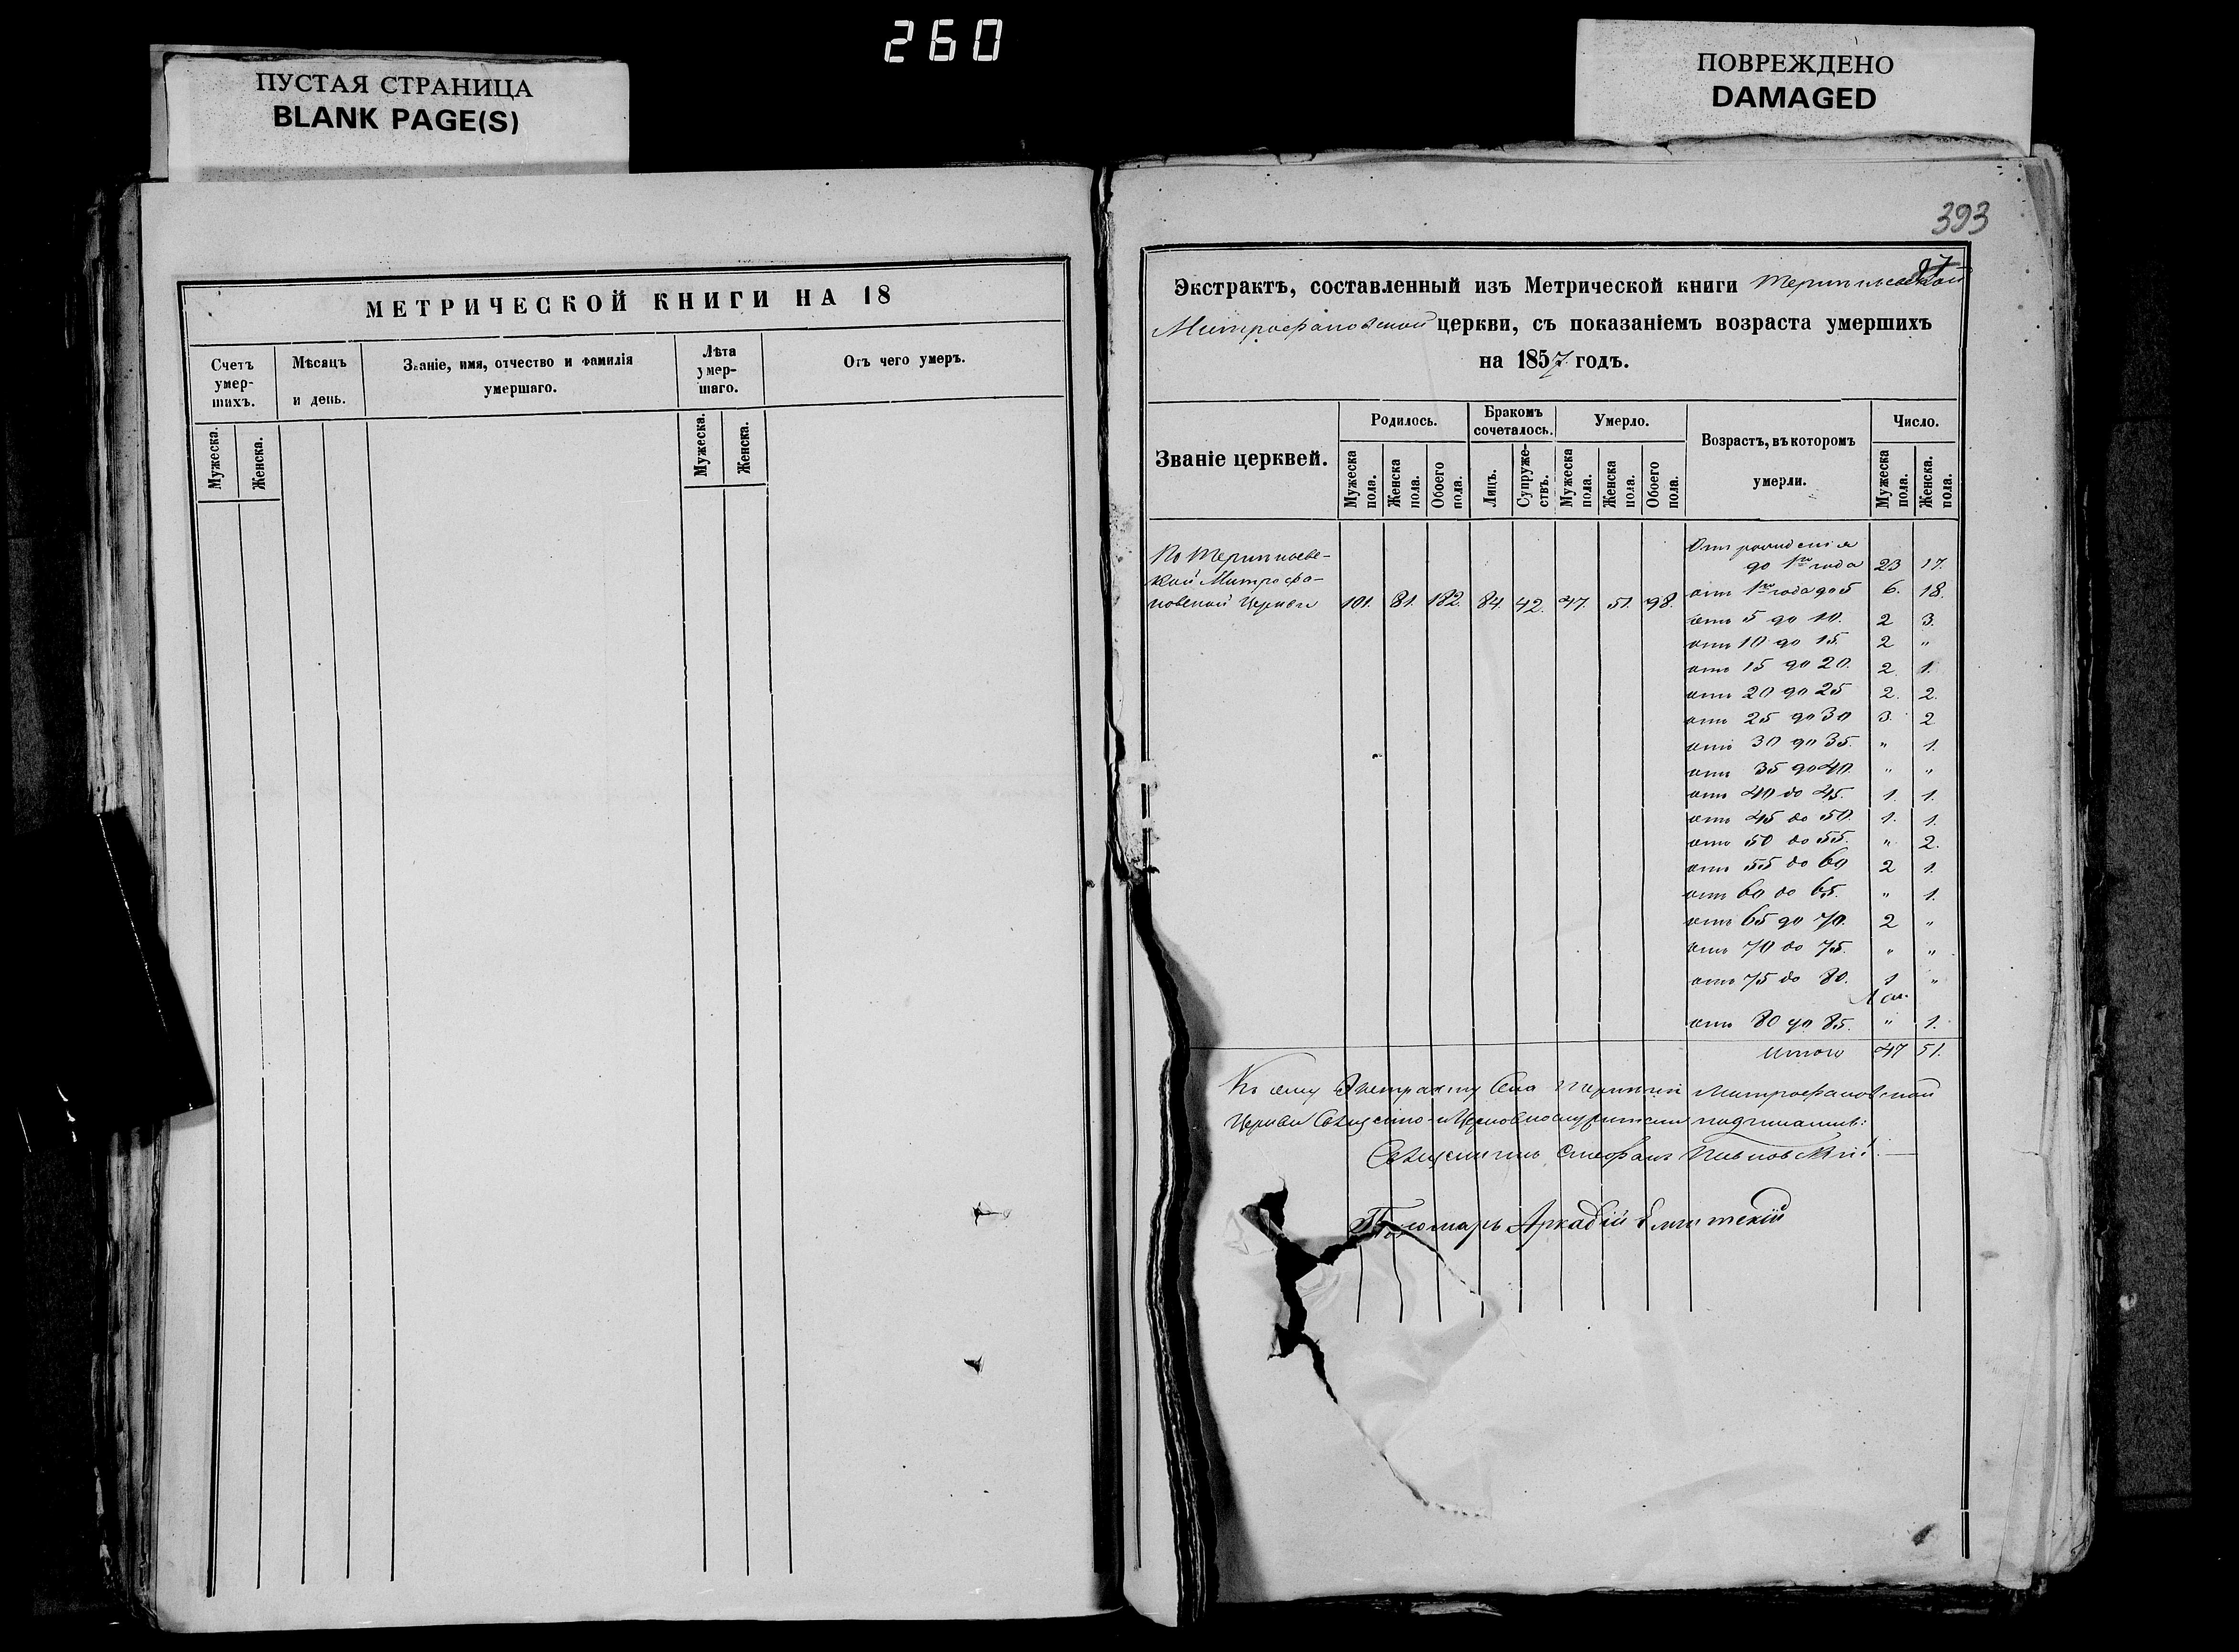 260
ПУСТАЯ СТРАНИЦА
BLANK PAGE(S)
ПОВРЕЖДЕНО
DAMAGED
МЕТРИЧЕСКОЙ КНИГИ НА 18
Счетъ умер-шихъ.
Мѣсяцъ и день.
Званіе, имя, отчество и фамилія умершаго.
Лѣта умер-шаго.
Отъ чего умеръ.
Мужеска.
Женска.
Мужеска.
Женска.
393
Экстрактъ, составленный изъ Метрической книги
Митрофановской церкви, съ показаніемъ возраста умершихъ
на 1857 годъ.
Званіе церквей.
Родилось.
Бракомъ сочеталось.
Умерло.
Возрастъ, въ которомъ умерли.
Число.
Мужеска пола.
Женска пола.
Обоего пола.
Лицъ.
Супруже-ствъ.
Мужеска пола.
Женска пола.
Обоего пола.
Мужеска пола.
Женска. пола.
кой Митрофа-
новской Церкви 101. 81. 182. 84. 42. 47. 51. 98.
Отъ рожденія
до 1го года 23 17.
отъ 1го года до 5 6. 18.
отъ 5 до 10. 2 3.
отъ 10 до 15. 2 "
отъ 15 до 20. 2. 1.
отъ 20 до 25 2. 2.
отъ 25 до 30 3. 2
отъ 30 до 35. " 1.
отъ 35 до 40. " "
отъ 40 до 45. 1. 1.
отъ 45 до 50. 1. 1.
отъ 50 до 55. " 2.
отъ 55 до 60 2 1.
отъ 60 до 65. " 1.
отъ 65 до 70. 2 "
отъ 70 до 75. " "
отъ 75 до 80. 1 "
отъ 80 до 85. " 1.
Итого 47 51.
Къ сему Экстракту Села Митрофановской
Церкви Священно-и Церковнослужители
Священникъ Стефанъ
Пономарь Аркадій